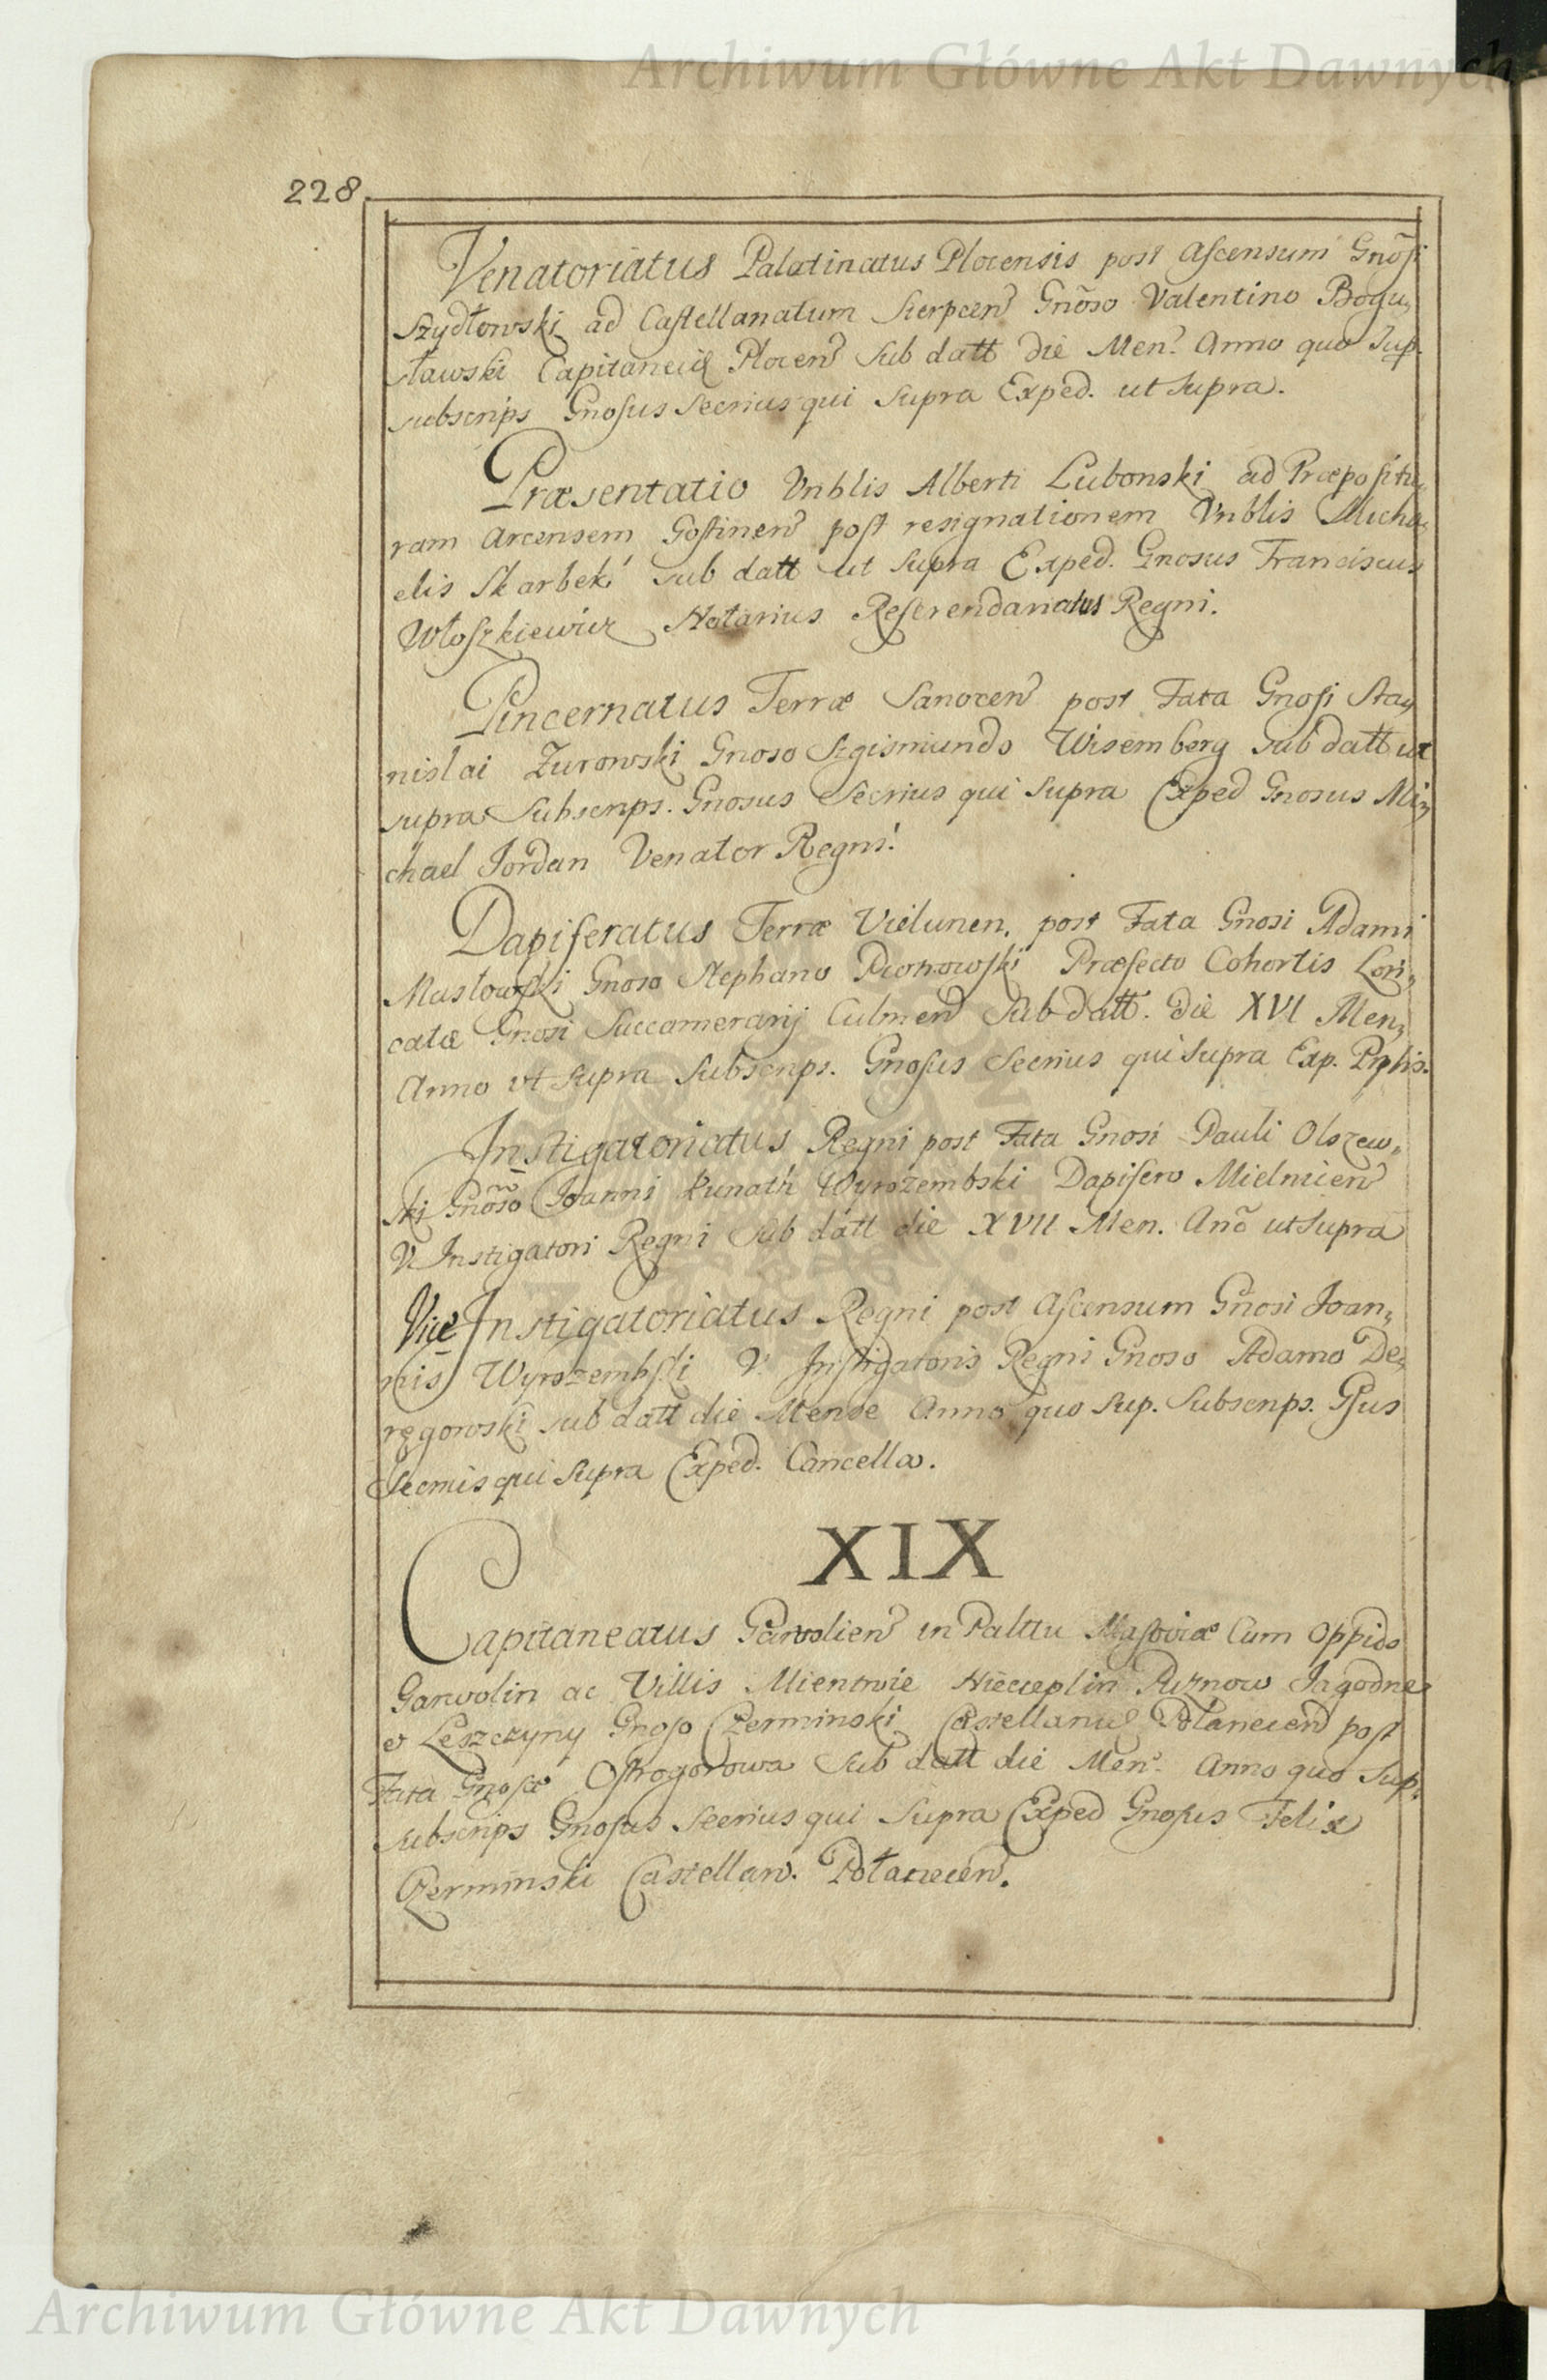 Archiwum Główne Akt Dawnych
228.
Venatoriatus Palatinatus Plocensis post Ascensum Gnõsi
Szydłowski ad Castellanatum Sierpcen Gnõso Valentino Bogu„
sławski Capitaneid Plocen Sub datt die Men. Anno quo Sup.
subscrips Gnosus Secrius qui Supra Exped. ut Supra.
Præsentatio Vnblis Alberti Lubonski ad Præpositu„
ram Arcensem Gostinen post resignationem Vnblis Micha„
elis Skarbek sub datt ut Supra Exped. Gnosus Franciscus
Włoszkiewicz Notarius Referendariatus Regni.
Pincernatus Terræ Sanocen post Fata Gnosi Sta„
nislai Zurowski Gnoso Sigismundo Wisemberg Sub datt ut
supra Subscrips. Gnosus Secrius qui Supra Exped Gnosus Mi„
chael Jordan Venator Regni.
Dapiferatus Terræ Vielunen. post Fata Gnosi Adami
Masłowski Gnoso Stephano Præfecto Cohortis Lori„
catæ Gnosi Succamerarij Culmen Sub Datt. die XVI Men„
Anno vt Supra Subscrips. Gnosus Secrius qui Supra Exp.
Instigatoriatus Regni post Fata Gnosi Pauli Olszew„
ski Gnõso Joanni Kunath Wyrozembski Dapifero Mielnicen
V Instigatori Regni Sub datt die XVII Men. Anõ ut Supra
Vice Instigatoriatus Regni post Ascensum Gnosi Joan„
nis Wyrozembski V. Instigatoris Regni Gnoso Adamo De„
ręgowski sub datt die Mense Anno quo Sup. Subscrips. Gsus
Secrius qui Supra Exped. Cancella.
XIX
Capitaneatus Garvolien in Palttu Masoviæ Cum Oppido
Garvolin ac Villis Mientwie Niecieplin Ruznow Jagodne
et Leszczyny Gnoso Czerminski Castellano Połanecen post
Fata Gnosæ Ostrogorowa Sub datt die Men. Anno quo Sup.
subscrips Gnosus Secrius qui Supra Exped Gnosus Felix
Czerminski Castellan. Połanecen.
Archiwum Główne Akt Dawnych